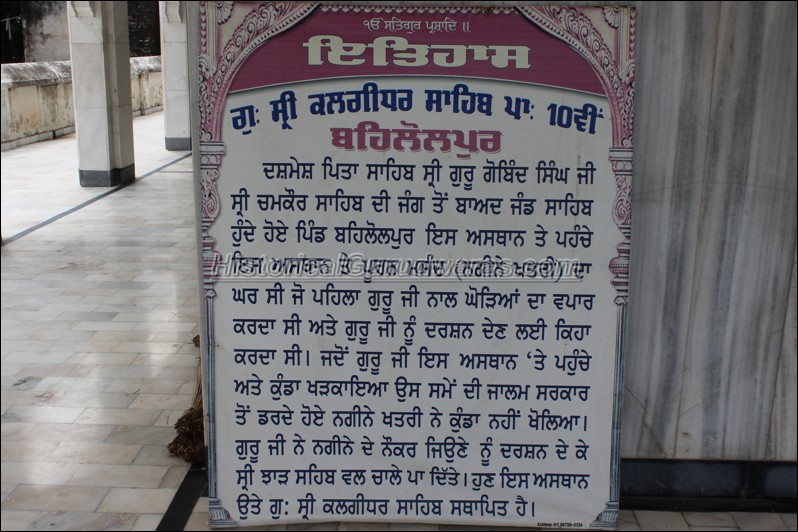 ੴ ਸਤਿਗੁਰ ਪ੍ਰਸ਼ਾਦਿ ॥
ਇਤਿਹਾਸ
ਗੁ: ਸ੍ਰੀ ਕਲਗੀਧਰ ਸਾਹਿਬ ਪਾ: 10ਵੀਂ
ਬਹਿਲੋਲਪੁਰ
ਦਸ਼ਮੇਸ਼ ਪਿਤਾ ਸਾਹਿਬ ਸ੍ਰੀ ਗੁਰੂ ਗੋਬਿੰਦ ਸਿੰਘ ਜੀ
ਸ੍ਰੀ ਚਮਕੌਰ ਸਾਹਿਬ ਦੀ ਜੰਗ ਤੋਂ ਬਾਅਦ ਜੰਡ ਸਾਹਿਬ
ਹੁੰਦੇ ਹੋਏ ਪਿੰਡ ਬਹਿਲੋਲਪੁਰ ਇਸ ਅਸਥਾਨ ਤੇ ਪਹੁੰਚੇ
ਇਸ ਅਸਥਾਨ ਤੇ ਪੂਰਨ ਮਸੰਦ (ਨਗੀਨੇ ਖਤਰੀ) ਦਾ
HistoricalGurudwaras.com
ਘਰ ਸੀ ਜੋ ਪਹਿਲਾ ਗੁਰੂ ਜੀ ਨਾਲ ਘੋੜਿਆਂ ਦਾ ਵਪਾਰ
ਕਰਦਾ ਸੀ ਅਤੇ ਗੁਰੂ ਜੀ ਨੂੰ ਦਰਸ਼ਨ ਦੇਣ ਲਈ ਕਿਹਾ
ਕਰਦਾ ਸੀ। ਜਦੋਂ ਗੁਰੂ ਜੀ ਇਸ ਅਸਥਾਨ ‘ਤੇ ਪਹੁੰਚੇ
ਅਤੇ ਕੁੰਡਾ ਖੜਕਾਇਆ ਉਸ ਸਮੇਂ ਦੀ ਜਾਲਮ ਸਰਕਾਰ
ਤੋਂ ਡਰਦੇ ਹੋਏ ਨਗੀਨੇ ਖਤਰੀ ਨੇ ਕੁੰਡਾ ਨਹੀਂ ਖੋਲਿਆ।
ਗੁਰੂ ਜੀ ਨੇ ਨਗੀਨੇ ਦੇ ਨੌਕਰ ਜਿਉਣੇ ਨੂੰ ਦਰਸ਼ਨ ਦੇ ਕੇ
ਸ੍ਰੀ ਝਾੜ ਸਹਿਬ ਵਲ ਚਾਲੇ ਪਾ ਦਿੱਤੇ। ਹੁਣ ਇਸ ਅਸਥਾਨ
ਉਤੇ ਗੁ: ਸ੍ਰੀ ਕਲਗੀਧਰ ਸਾਹਿਬ ਸਥਾਪਿਤ ਹੈ।